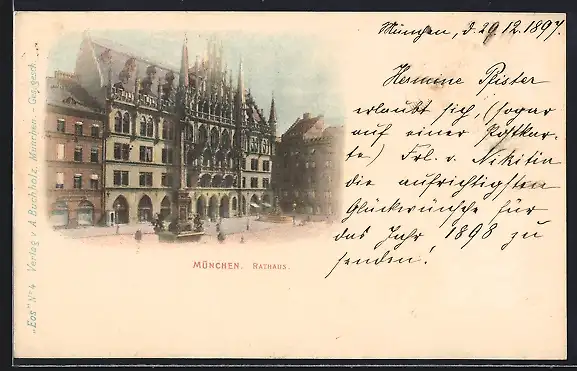 München, d. 29.12.1897.
Hermine Pfister
erlaubt sich, (sogar
auf einer Postkar-
te) Frl. v. Nikitin
die aufrichtigsten
Glückwünsche für
das Jahr 1898 zu
senden!
MÜNCHEN. RATHAUS.
„Eos" No 4 Verlag v. A. Buchholz. München. - Ges. gesch.